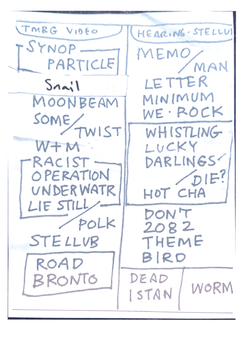 TMBG VIDEO
SYNOP
PARTICLE
Snail
MOONBEAM
SOME/
TWIST
W+M
RACIST
OPERATION
UNDERWATR
LIE STILL/
POLK
STELLUB
ROAD
BRONTO
HEARING-STELLU
MEMO/
MAN
LETTER
MINIMUM
WE·ROCK
WHISTLING
LUCKY
DARLINGS/
DIE?
HOT CHA
DON'T
2082
THEME
BIRD
DEAD
ISTAN
WORM